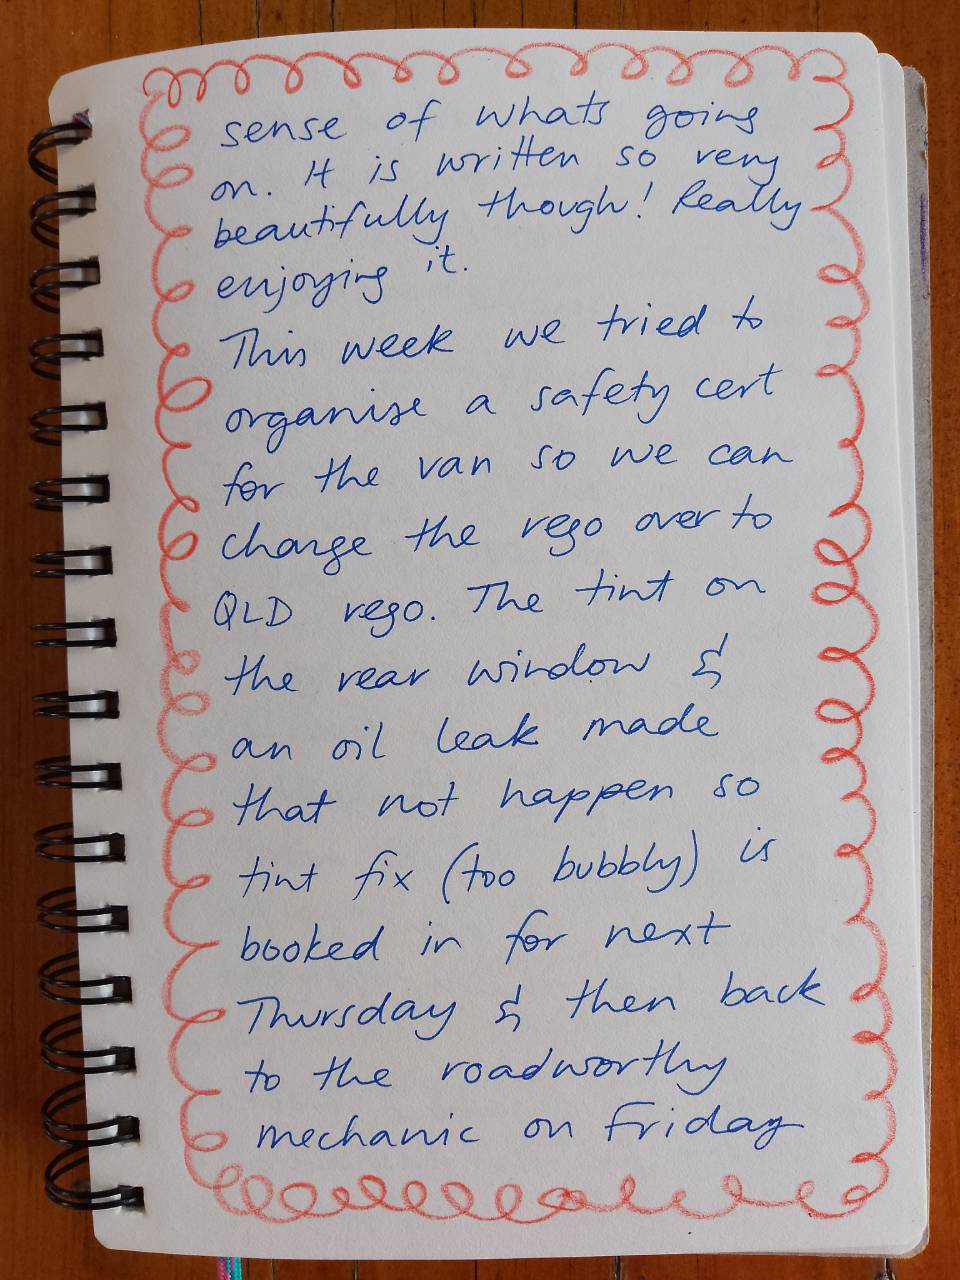 sense of whats going
on. It is written so very
beautifully though! Really
enjoying it.
This week we tried to
organise a safety cert
for the van so we can
change the rego over to
QLD rego. The tint on
the rear window &
an oil leak made
that not happen so
tint fix (too bubbly) is
booked in for next
Thursday & then back
to the roadworthy
mechanic on Friday